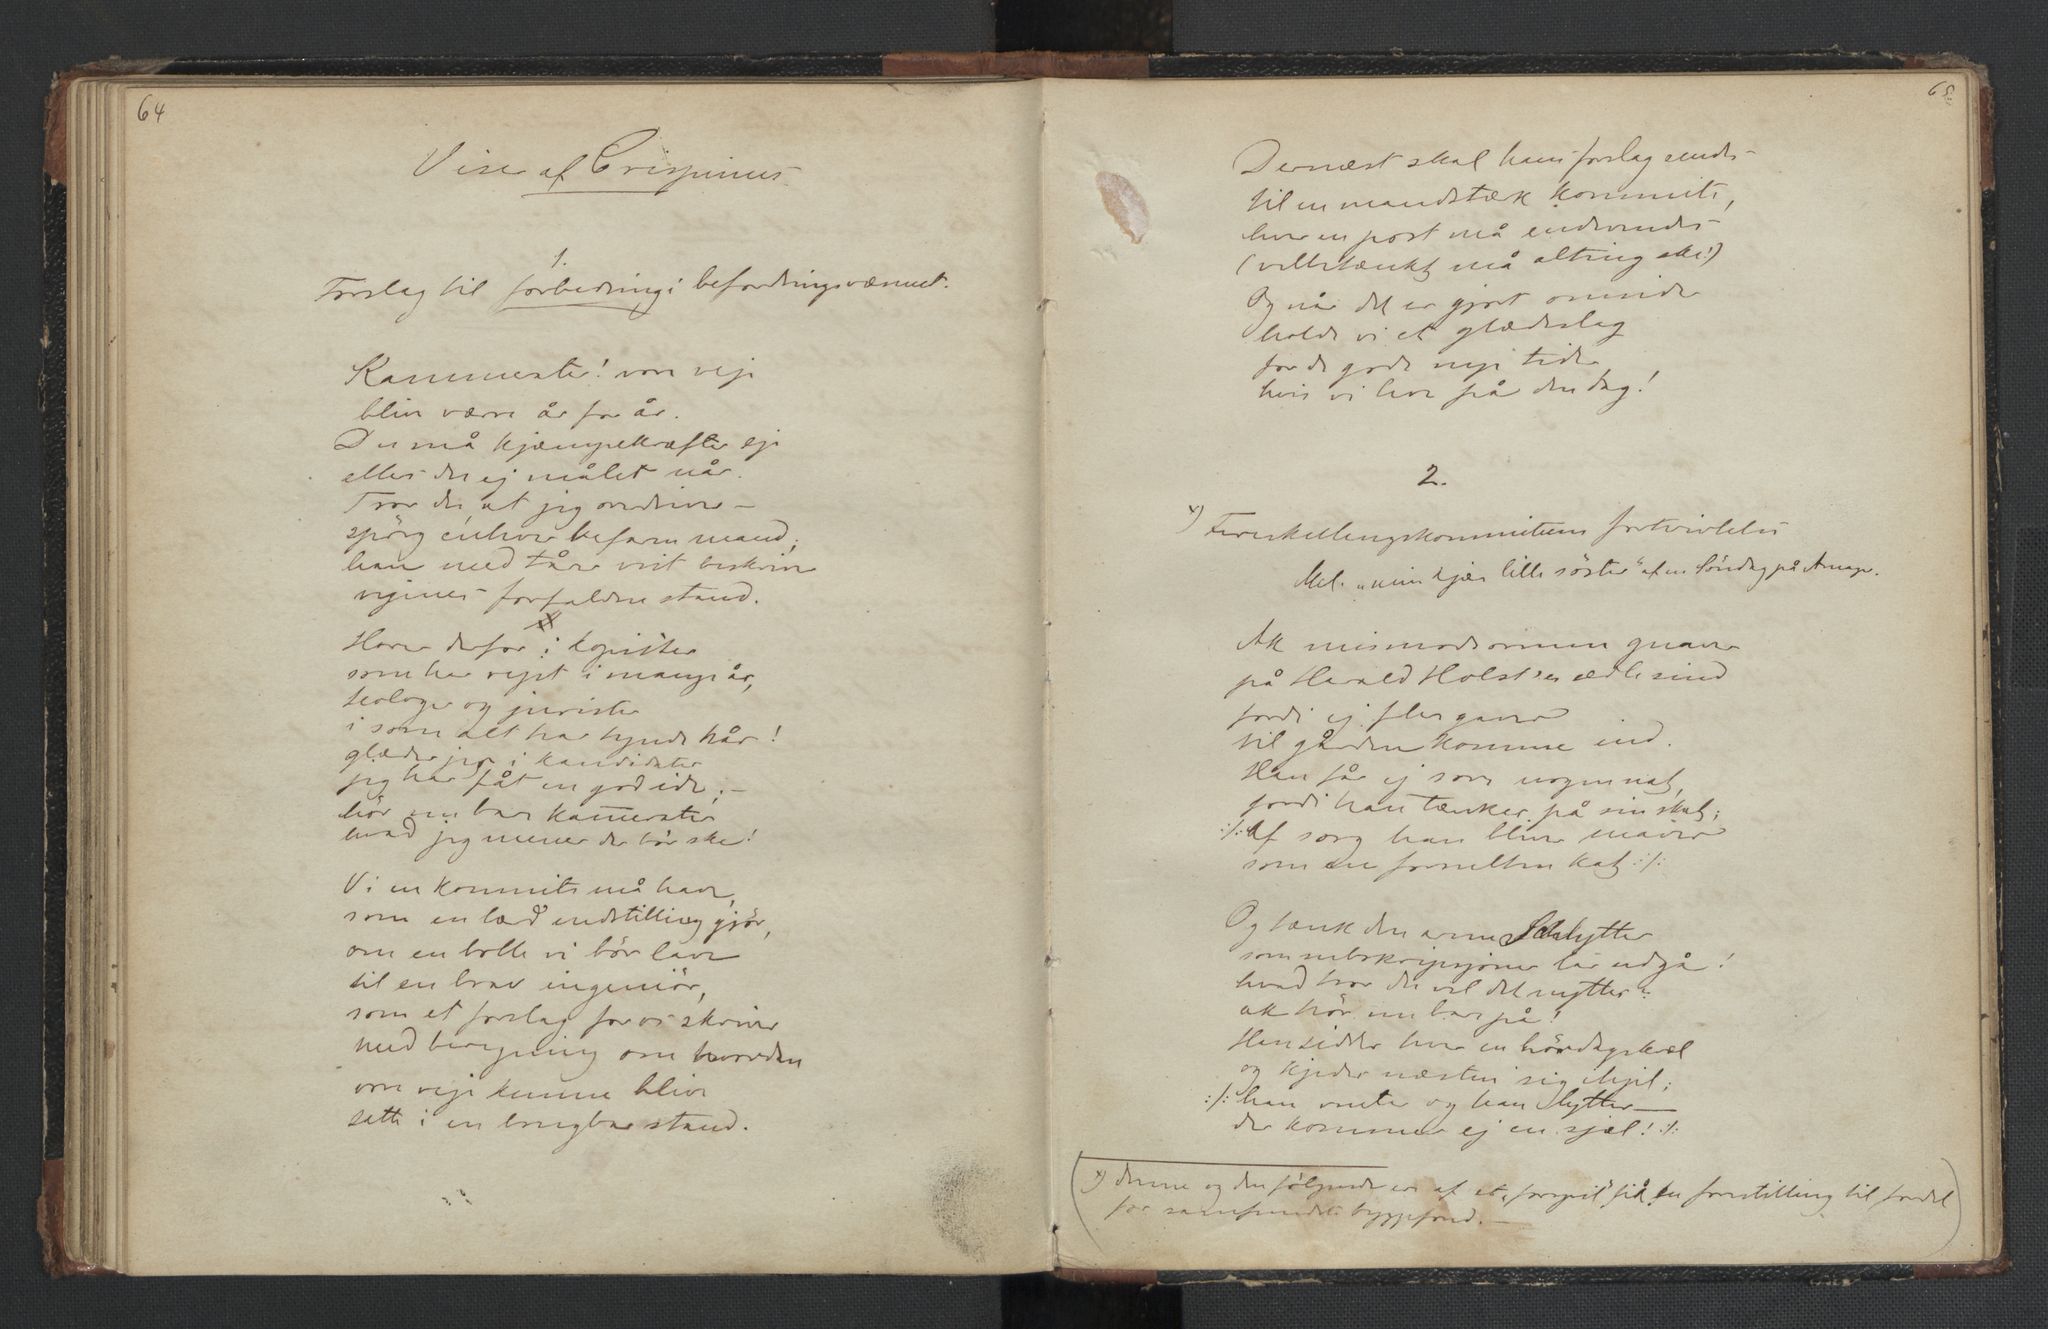 64
Viser af Crispinus.
1.
Forslag til forbedring i befordringsvæsenet.
Kammerater! vore veje
bliver værre år for år.
Du må kjæmpekræfter eje
ellers du ej målet når.
Tror du, at jeg overdriver –
spörg enhver befaren mand;
han med tårer vist beskriver
vejenes forfaldne stand.
Hører derfor i kopister
som har rejst i mange år,
teologer og jurister
i som alt har tynde hår!
glæder jer i kandidater
jeg har fåt en god ide; –
hör nu bare kamerater
hvad jeg mener der bör ske!
Vi en kommite må have,
som en lærd indstilling gjör,
om en bolle vi bör lave
til en brav ingeniör,
som et forslag for os skriver
med beregning om hvordan
vore veje kunne blive
satte i en brugbar stand.
65
Dernæst skal hans forslag sendes
til en mandstærk kommite,
hver en post må endevendes
(velbetænkt må alting ske!)
Og når det er gjort omsider
holde vi et glædeslag
for de gode nye tider
hvis vi leve på den dag!
2.
x) Fireskillingskommiteens fortvivlelse
Mel. „min kjære lille söster" af en Söndag på Amager.
Ak mismodsormen gnaver
på Harald Holst's ædle sind
fordi ej flere gaver
til gården komme ind.
Han får ej sove nogen nat,
fordi han tænker på sin skat;
:/: Af sorg han bliver mager
som en forsulten kat :/:
Og tænk den arme Schlytter
som subskripsjoner lar udgå!
hvad tror du vel det nytter?
ak hör nu bare på!
Han sidder hver en hördagskvæl
og kjeder næsten sig ihjel;
:/: han venter og han lytter –
der kommer ej en sjæl! :/:
x) denne og den følgende er af et „forspil" på en forestilling til fordel
for samfundets byggefond. –